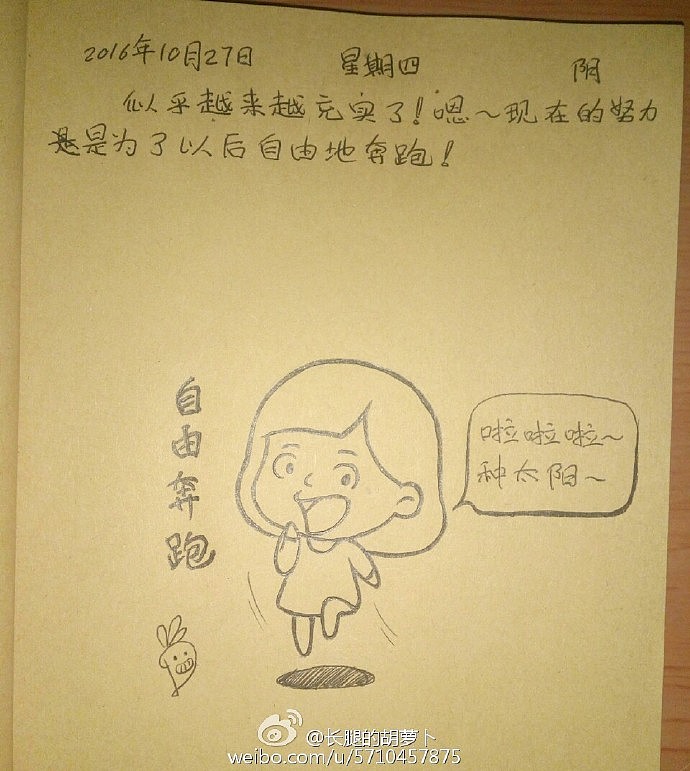 2016年10月27日 星期四 阴
似乎越来越充实了！嗯～现在的努力
是是为了以后自由地奔跑！
自由奔跑
啦啦啦～
种太阳～
@长腿的胡萝卜
weibo.com/u/5710457875